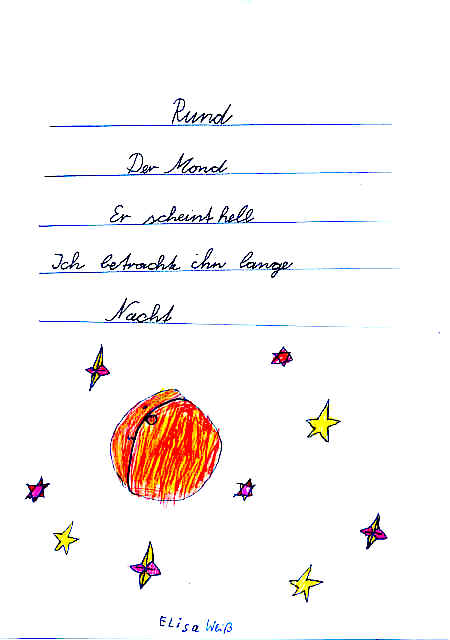 Rund
Der Mond
Er scheint hell
Ich betrachte ihn lange
Nacht
Elisa Weiß